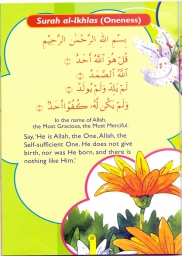 Surah al-Ikhlas (Oneness)
بِسْمِ اللهِ الرَّحْمٰنِ الرَّحِيْمِ
قُلْ هُوَ اللهُ أَحَدٌ
اللهُ الصَّمَدُ
لَمْ يَلِدْ وَلَمْ يُوْلَدْ
وَلَمْ يَكُنْ لَّهُ، كُفُوًا أَحَدٌ
In the name of Allah,
the Most Gracious, the Most Merciful.
Say, 'He is Allah, the One, Allah, the
Self-sufficient One. He does not give
birth, nor was He born, and there is
nothing like Him.'